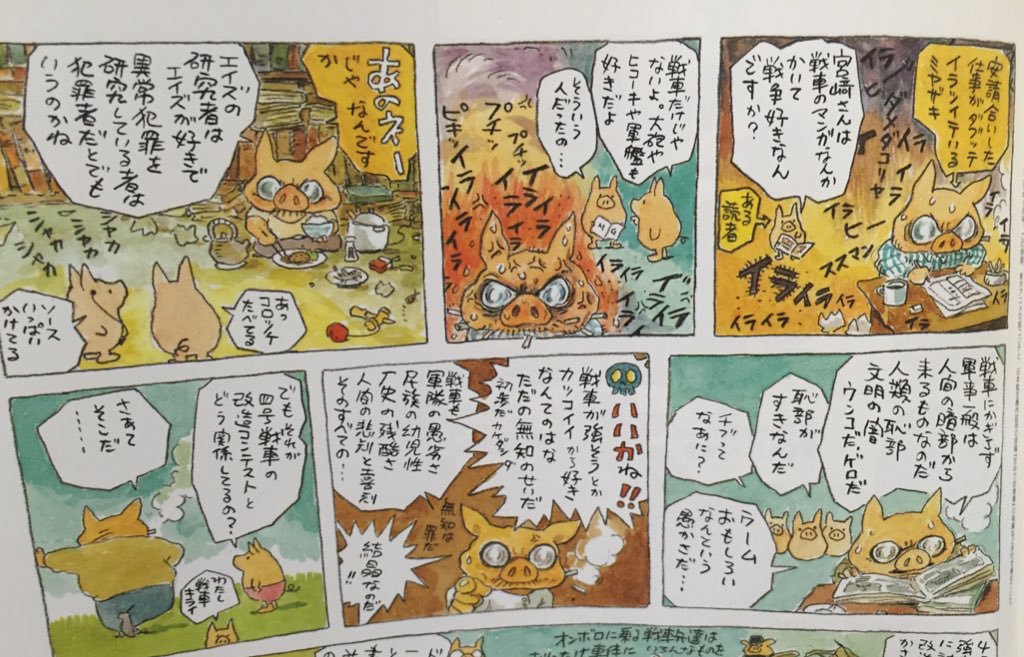 安請合いした
仕事がダブッテ
イラツイテイる
ミヤザキ
イラ
イラ
イラ
宮崎さんは
戦車のマンガなんか
かいて
戦争好きなん
ですか?
ある
読者
イライラ
イラ イラ
イラ
戦車だけじゃ
ないよ。大砲や
ヒコーキや軍艦も
好きだよ
そういう
人だったの…
プチッ
プチッ
ピキッ
イライラ
イライラ
イライラ
あのネー
じゃ なんです
か
エイズの
研究者は
エイズが好きで
異常犯罪を
研究している者は
犯罪者だとでも
いうのかね
シャカ
シャカ
シャカ
あっ
コロッケ
たべてる
ソース
いっぱい
かけてる
戦車にかぎらず
軍事一般は
人間の暗部から
来るものなのだ
人類の恥部
文明の闇
ウンコだ、ゲロだ
恥部が
すきなんだ
チブって
なあに?
ウーム
おもしろい
なんという
愚かさだ…
いいかね!!
戦車が強そうとか
カッコイイから好き
なんてのはな
ただの無知のせいだ
初歩だカケダシダ
戦車も
軍隊の愚劣さ
民族の幼児性
歴史の残酷さ
人間の悲劇と喜劇
そのすべての…
無知は
罪だ
結晶なのだ
!!
でもそれが
四号戦車の
改造コンテストと
どう関係してるの?
さあて
そこだ
……
わたし
戦車
キライ
オンボロに乗る戦車兵達は